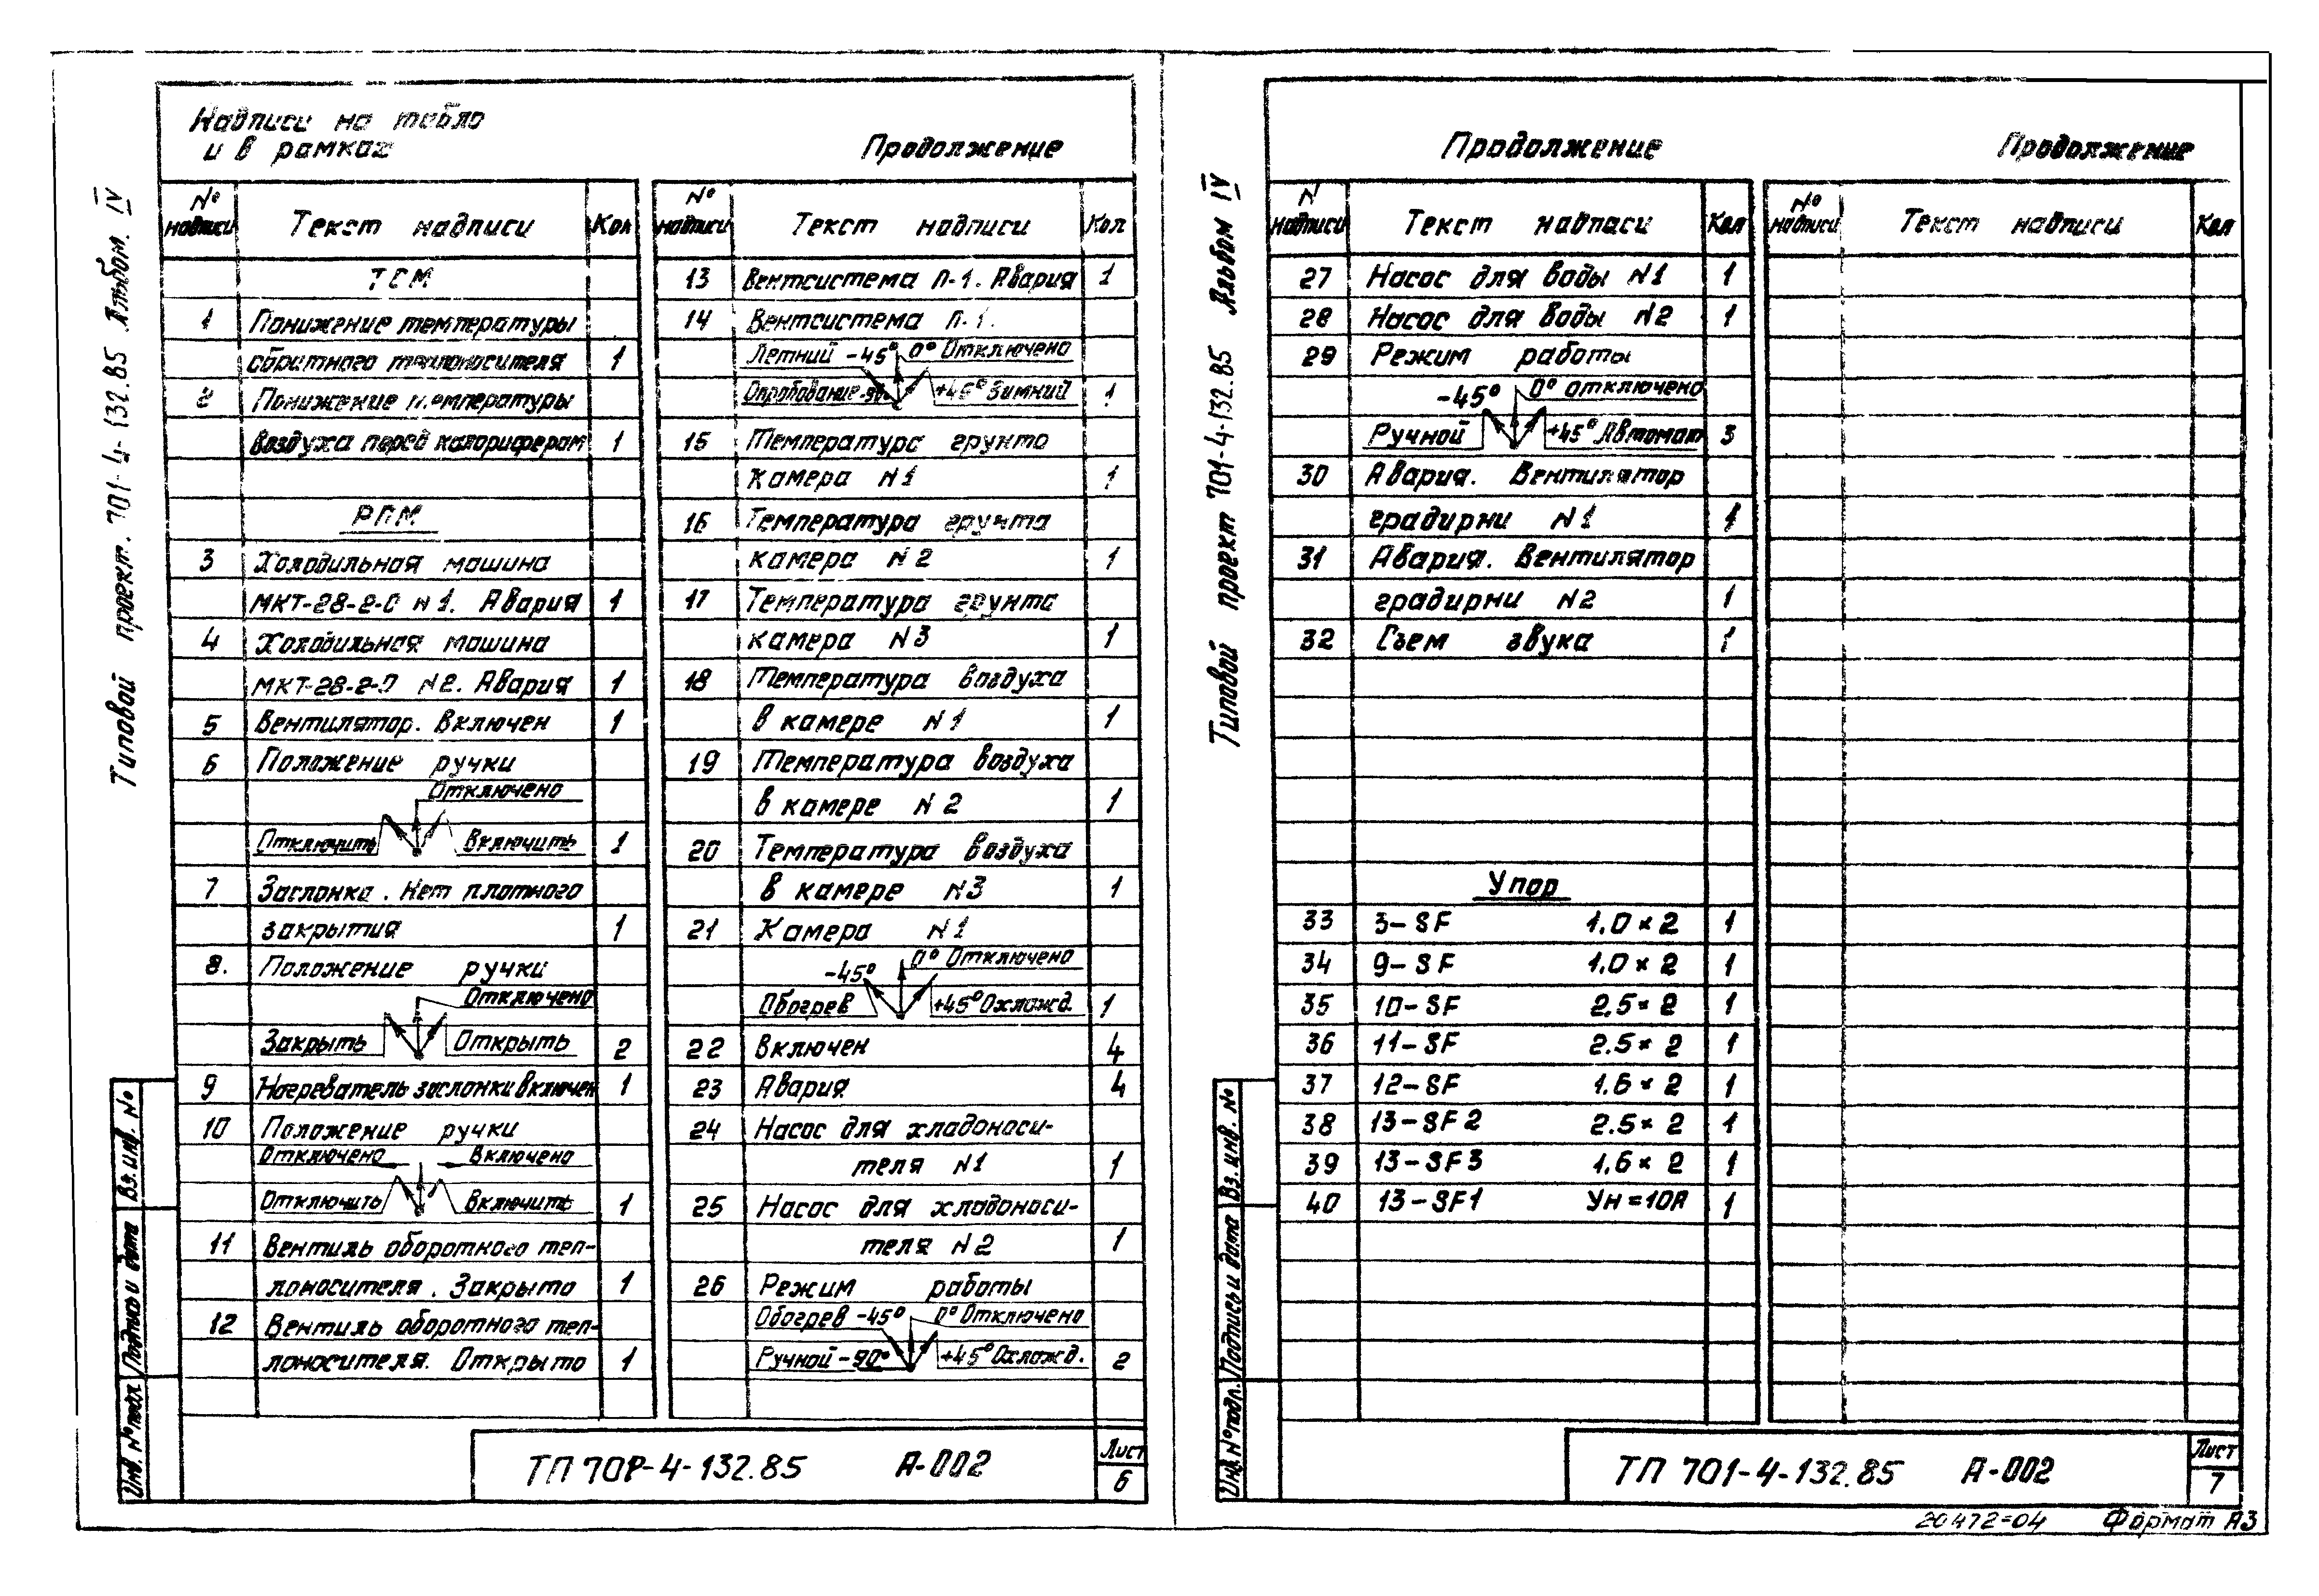 Типовой проект. 701-4-132.85 Альбом. IV
Надписи на табло
и в рамках
Продолжение
№ надписи Текст надписи Кол
ТСМ
1 Понижение температуры
обратного теплоносителя 1
2 Понижение температуры
воздуха перед калорифером 1
РПМ
3 Холодильная машина
МКТ-28-2-0 N1. Авария 1
4 Холодильная машина
МКТ-28-2-0 N2. Авария 1
5 Вентилятор. Включен 1
6 Положение ручки
Отключено
Отключить Включить 1
7 Заслонка. Нет плотного
закрытия 1
8. Положение ручки
Отключено
Закрыть Открыть 2
9 Нагреватель заслонки включен 1
10 Положение ручки
Отключено Включено
Отключить Включить 1
11 Вентиль оборотного теп-
лоносителя. Закрыто 1
12 Вентиль оборотного теп-
лоносителя. Открыто 1
№ надписи Текст надписи Кол
13 Вентсистема П-1. Авария 1
14 Вентсистема П-1.
Летний -45° 0° Отключено
Опробование -90° +45° Зимний 1
15 Температура грунта
камера N1 1
16 Температура грунта
камера N2 1
17 Температура грунта
камера N3 1
18 Температура воздуха
в камере N1 1
19 Температура воздуха
в камере N2 1
20 Температура воздуха
в камере N3 1
21 Камера N1
-45° 0° Отключено
Обогрев +45° Охлажд. 1
22 Включен 4
23 Авария 4
24 Насос для хладоноси-
теля N1 1
25 Насос для хладоноси-
теля N2 1
26 Режим работы
Обогрев -45° 0° Отключено
Ручной -90° +45° Охлажд. 2
Инв. № подл. Подпись и дата Вз. инв. №
ТП 701-4-132.85 А-002
Лист
6
Типовой проект 701-4-132.85 Альбом IV
Продолжение
Продолжение
N надписи Текст надписи Кол
27 Насос для воды N1 1
28 Насос для воды N2 1
29 Режим работы
-45° 0° Отключено
Ручной +45° Автомат 3
30 Авария. Вентилятор
градирни N1 1
31 Авария. Вентилятор
градирни N2 1
32 Съем звука 1
Упор
33 3-SF 1.0×2 1
34 9-SF 1.0×2 1
35 10-SF 2.5×2 1
36 11-SF 2.5×2 1
37 12-SF 1.6×2 1
38 13-SF2 2.5×2 1
39 13-SF3 1.6×2 1
40 13-SF1 Ун=10А 1
№ надписи Текст надписи Кол
Инв. № подл. Подпись и дата Вз. инв. №
ТП 701-4-132.85 А-002
Лист
7
20472-04 Формат А3